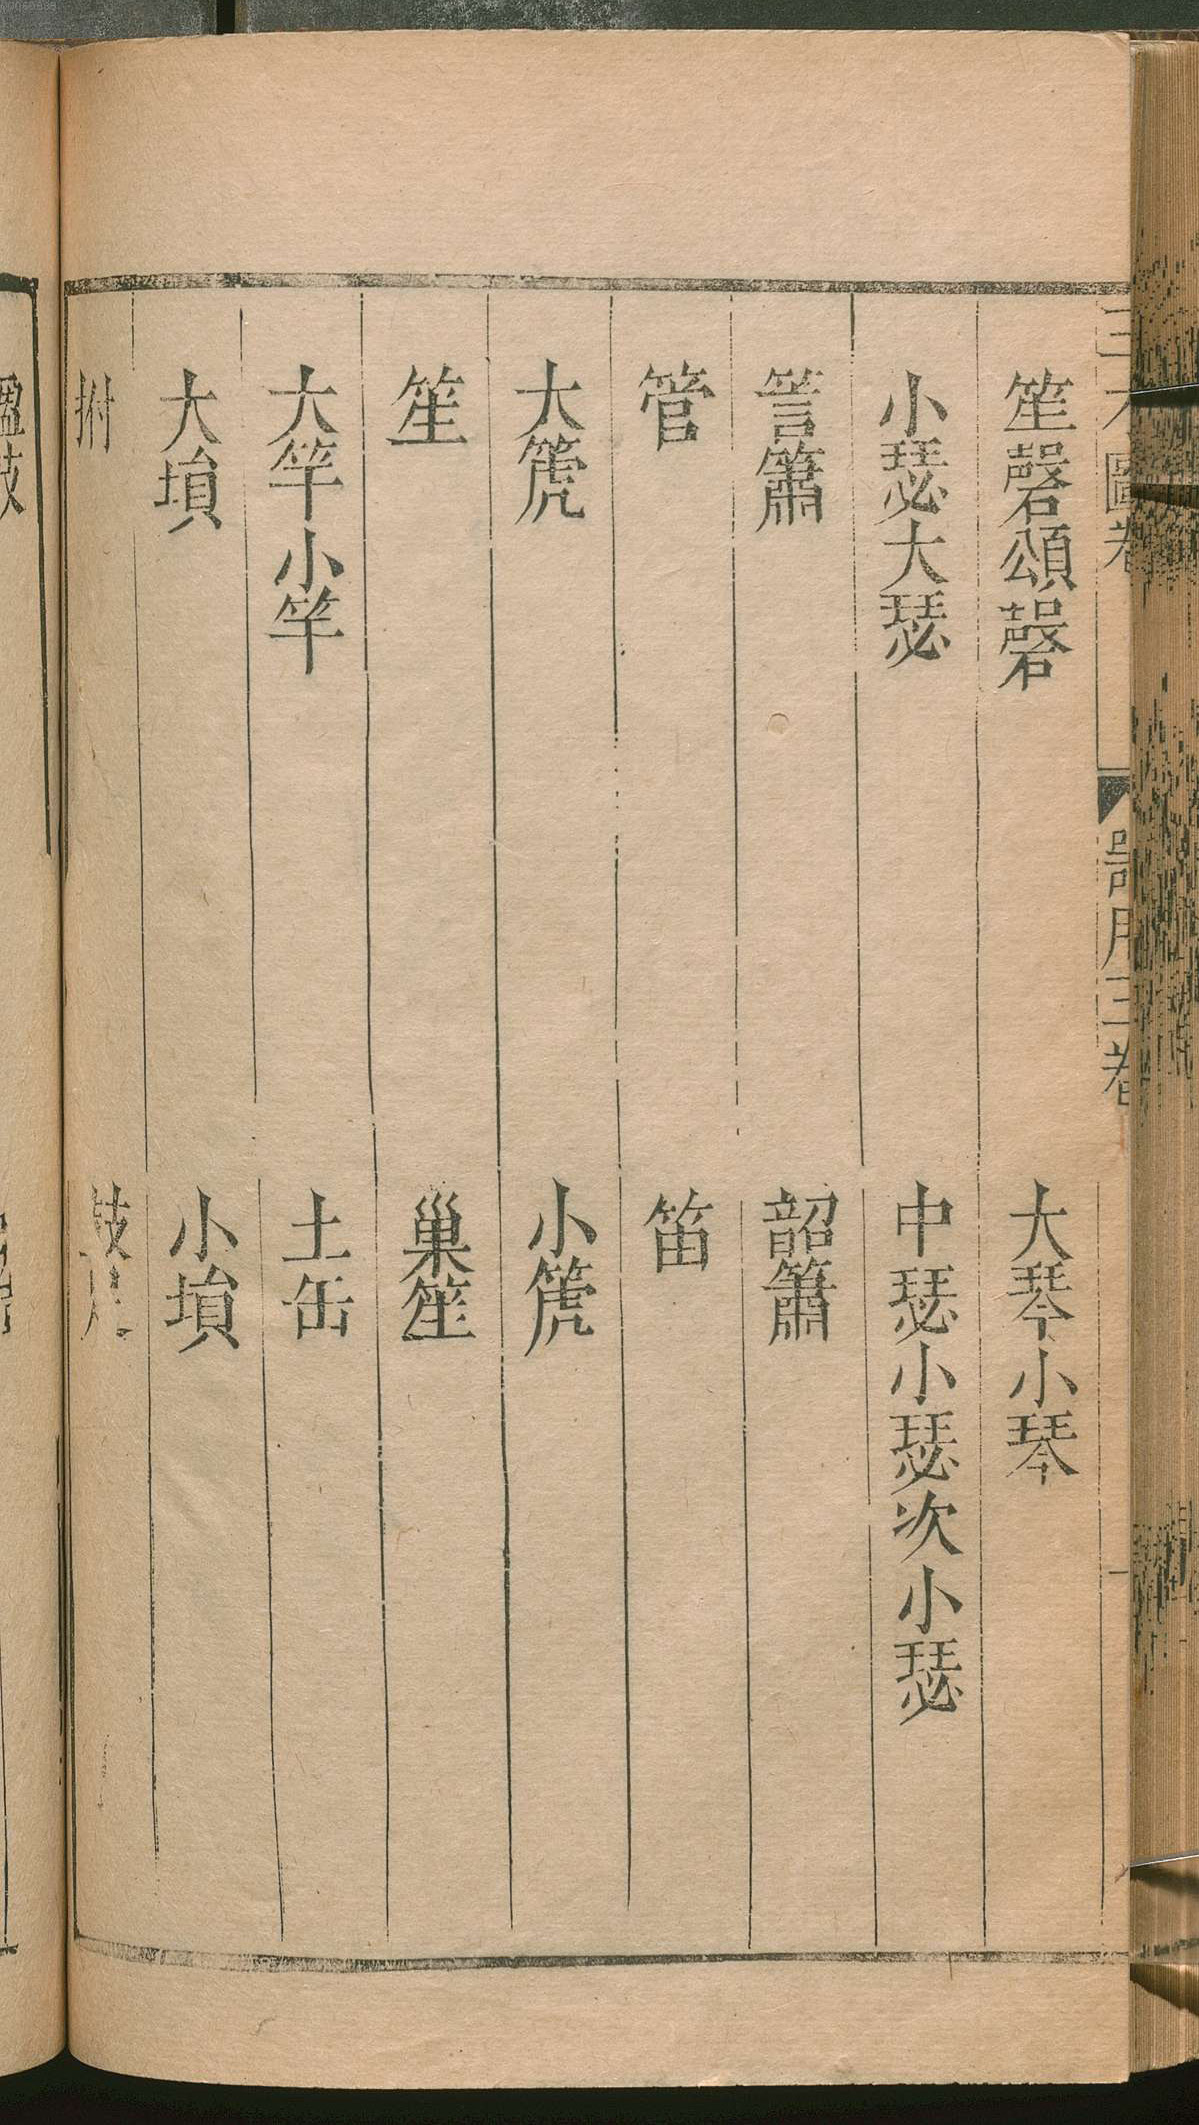 三才圖卷 器用三卷 一
笙磬頌磬 大琴小琴
小瑟大瑟 中瑟小瑟次小瑟
䇾簫 韶簫
管 笛
大箎 小箎
笙 巢笙
大竽小竽 土缶
大塤 小塤
拊